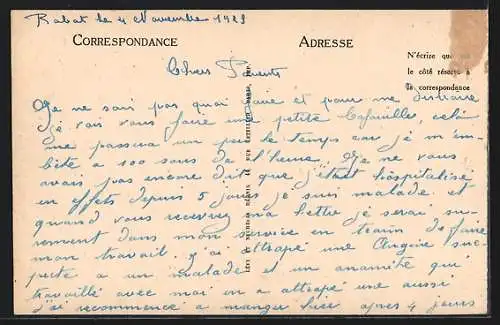 Rabat le 4 Novembre 1929
CORRESPONDANCE
ADRESSE
N'écrire que sur
le côté réservé à
la correspondance
Chers Parents
Je ne sais pas quoi faire et pour me distraire
je vais vous faire une petite babouille, cela
me passera un peu le temps car je m'em-
bête a 100 sous de l'heure. Je ne vous
avais pas encore dit que j'étais hôspitalisé
en effets depuis 5 jours je suis malade et
quand vous recevrez ma lettre je serai su-
rement dans mon service en train de faire
mon travail. j'ai attrapé une Angine sus-
pecte a un malade et un anamite qui
travaille avec moi en a attrapé une aussi
j'ai recommencé a manger hier apres 4 jours